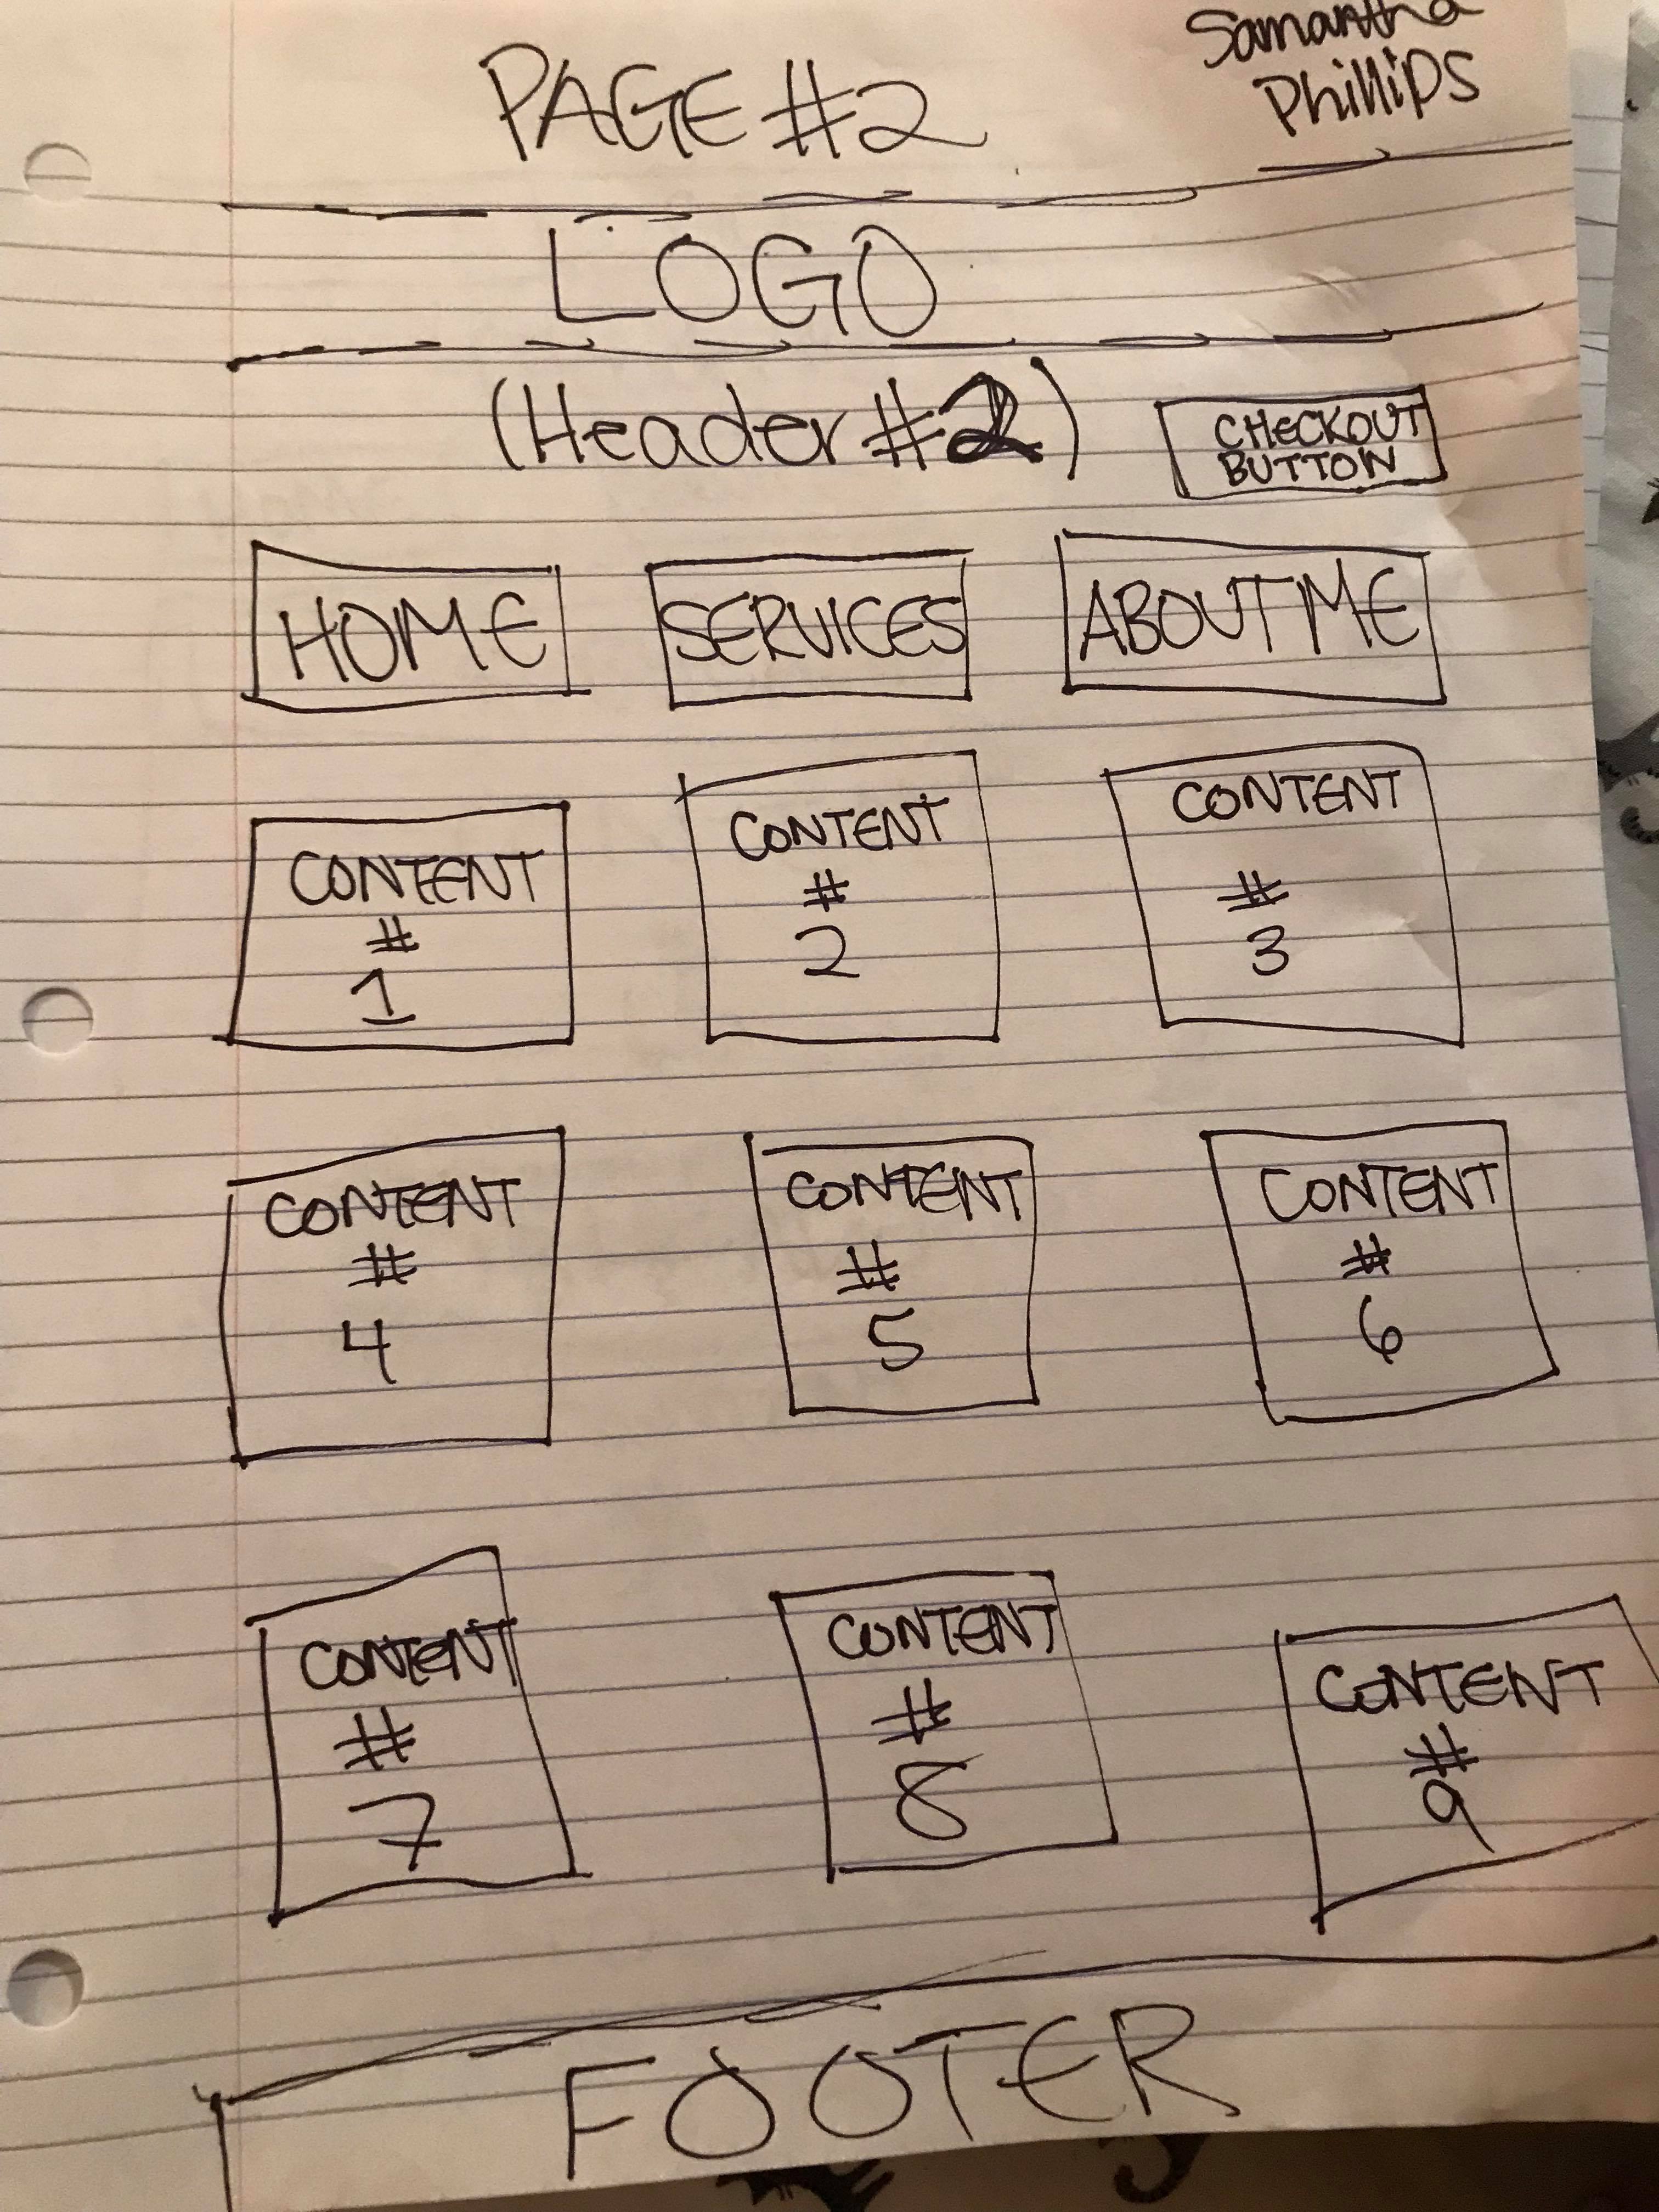 PAGE #2
Samantha
Phillips
LOGO
(Header #2)
CHECKOUT
BUTTON
HOME
SERVICES
ABOUT ME
CONTENT
#
1
CONTENT
#
2
CONTENT
#
3
CONTENT
#
4
CONTENT
#
5
CONTENT
#
6
CONTENT
#
7
CONTENT
#
8
CONTENT
#
9
FOOTER